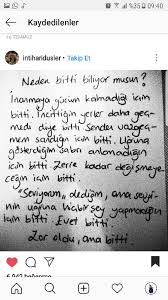 % 25 09:40
Kaydedilenler
16 TEMMUZ
intiharidusler • Takip Et
Neden bitti biliyor musun?
İnanmaya gücüm kalmadığı için
bitti. İncittiğin yerler daha geç-
medi diye bitti. Senden vazgeç-
mem sandığın için bitti. Uğruna
gösterdiğim sabrı anlamadığın
için bitti. Zerre kadar değişmeye-
ceğin için bitti.
"Seviyorum" dediğin, ama sevgi-
nin uğruna hiçbir şey yapmadığın
için bitti. Evet bitti.
Zor oldu, ama bitti